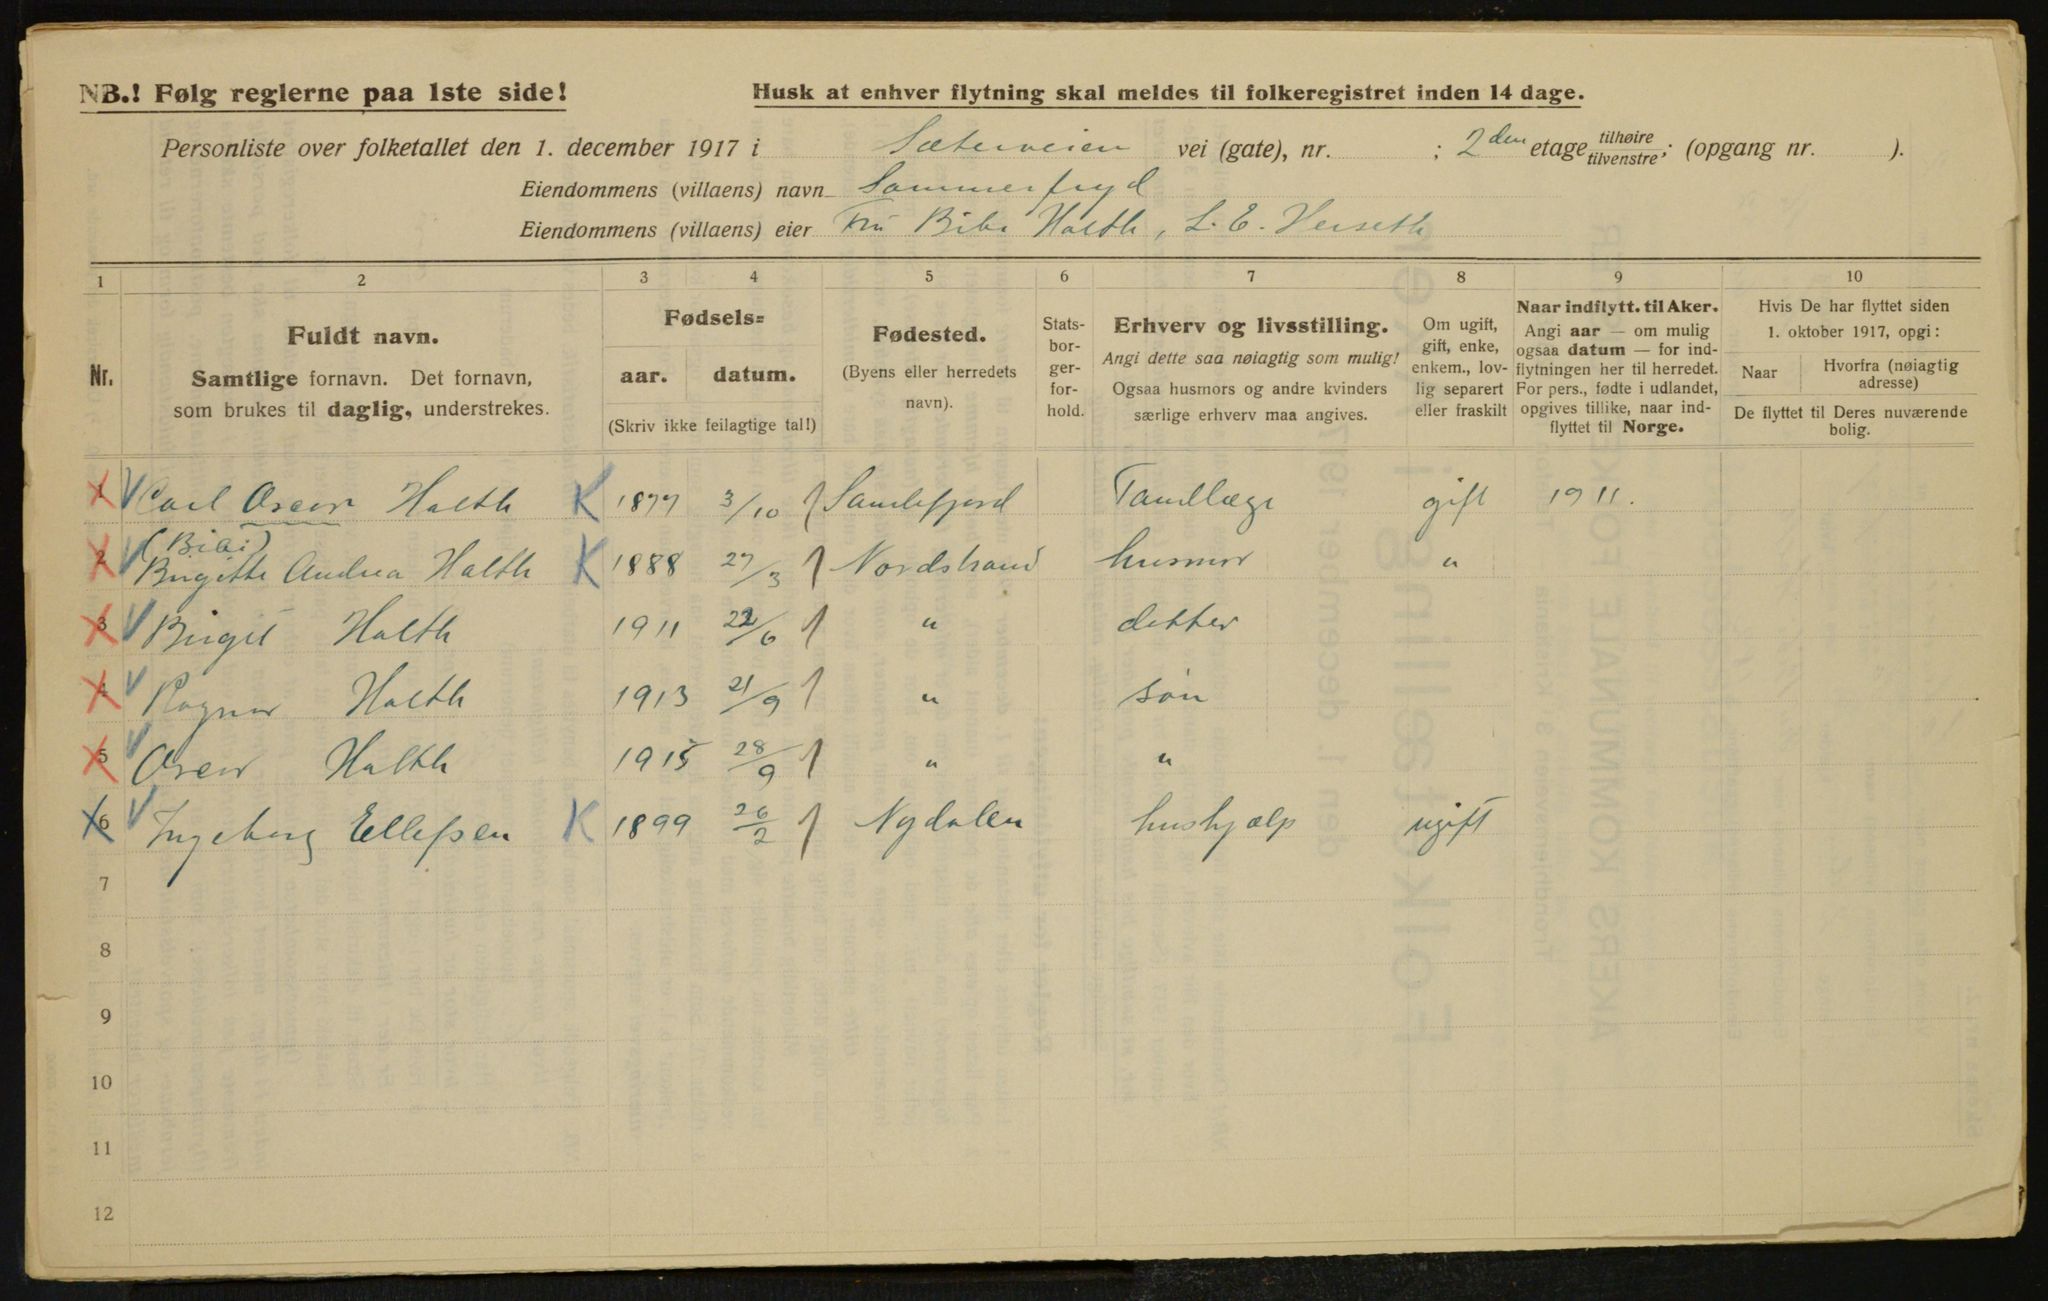 NB.! Følg reglerne paa 1ste side!
Husk at enhver flytning skal meldes til folkeregistret inden 14 dage.
Personliste over folketallet den 1. december 1917 i Sæterveien vei (gate), nr. ; 2den etage tilhøire/tilvenstre; (opgang nr. ).
Eiendommens (villaens) navn Sommerfryd
Eiendommens (villaens) eier Fru Bibi Holth, L. E. Herseth
1 2 3 4 5 6 7 8 9 10
Nr.
Fuldt navn.
Samtlige fornavn. Det fornavn,
som brukes til daglig, understrekes.
Fødsels=
aar. datum.
(Skriv ikke feilagtige tal!)
Fødested.
(Byens eller herredets
navn).
Stats-
bor-
ger-
for-
hold.
Erhverv og livsstilling.
Angi dette saa nøiagtig som mulig!
Ogsaa husmors og andre kvinders
særlige erhverv maa angives.
Om ugift,
gift, enke,
enkem., lov-
lig separert
eller fraskilt
Naar indflytt. til Aker.
Angi aar — om mulig
ogsaa datum — for ind-
flytningen her til herredet.
For pers., fødte i udlandet,
opgives tillike, naar ind-
flyttet til Norge.
Hvis De har flyttet siden
1. oktober 1917, opgi:
Naar
Hvorfra (nøiagtig
adresse)
De flyttet til Deres nuværende
bolig.
1 Carl Oscar Holth K 1877 3/10 Sandefjord Tandlæge gift 1911.
(Bibi)
2 Birgitte Andrea Holth K 1888 27/3 Nordstrand husmor "
3 Birgit Holth 1911 22/6 " datter
4 Ragnar Holth 1913 21/9 " søn
5 Oscar Holth 1915 28/9 " "
6 Ingeborg Ellefsen K 1899 26/2 Nydalen hushjælp ugift
7
8
9
10
11
12